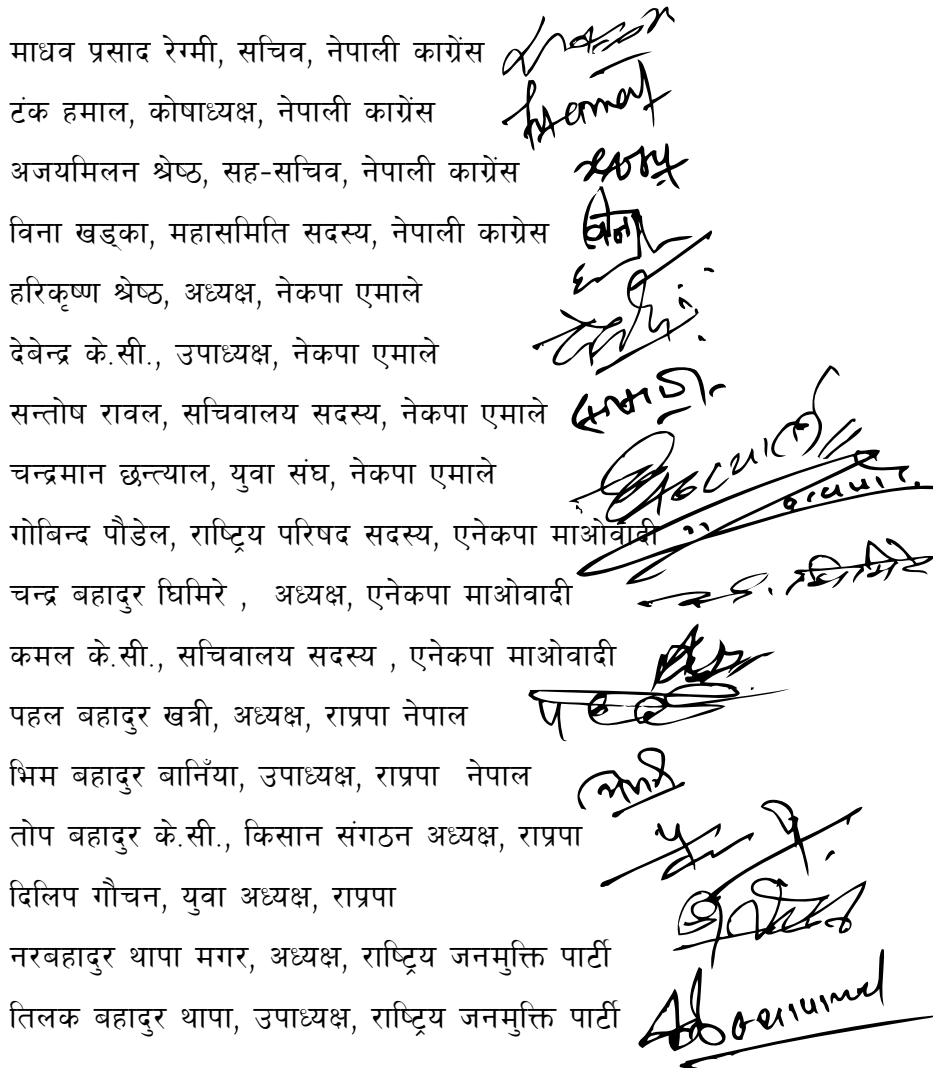 माधव प्रसाद रेग्मी, सचिव, नेपाली काग्रेंस
टंक हमाल, कोषाध्यक्ष, नेपाली काग्रेंस
अजयमिलन श्रेष्ठ, सह-सचिव, नेपाली काग्रेंस
विना खड्का, महासमिति सदस्य, नेपाली काग्रेस विना
हरिकृष्ण श्रेष्ठ, अध्यक्ष, नेकपा एमाले
देबेन्द्र के.सी., उपाध्यक्ष, नेकपा एमाले
सन्तोष रावल, सचिवालय सदस्य, नेकपा एमाले
चन्द्रमान छन्त्याल, युवा संघ, नेकपा एमाले
गोबिन्द पौडेल, राष्ट्रिय परिषद सदस्य, एनेकपा माओवादी
चन्द्र बहादुर घिमिरे , अध्यक्ष, एनेकपा माओवादी
कमल के.सी., सचिवालय सदस्य , एनेकपा माओवादी
पहल बहादुर खत्री, अध्यक्ष, राप्रपा नेपाल
भिम बहादुर बानिँया, उपाध्यक्ष, राप्रपा नेपाल
तोप बहादुर के.सी., किसान संगठन अध्यक्ष, राप्रपा
दिलिप गौचन, युवा अध्यक्ष, राप्रपा
नरबहादुर थापा मगर, अध्यक्ष, राष्ट्रिय जनमुक्ति पार्टी
तिलक बहादुर थापा, उपाध्यक्ष, राष्ट्रिय जनमुक्ति पार्टी